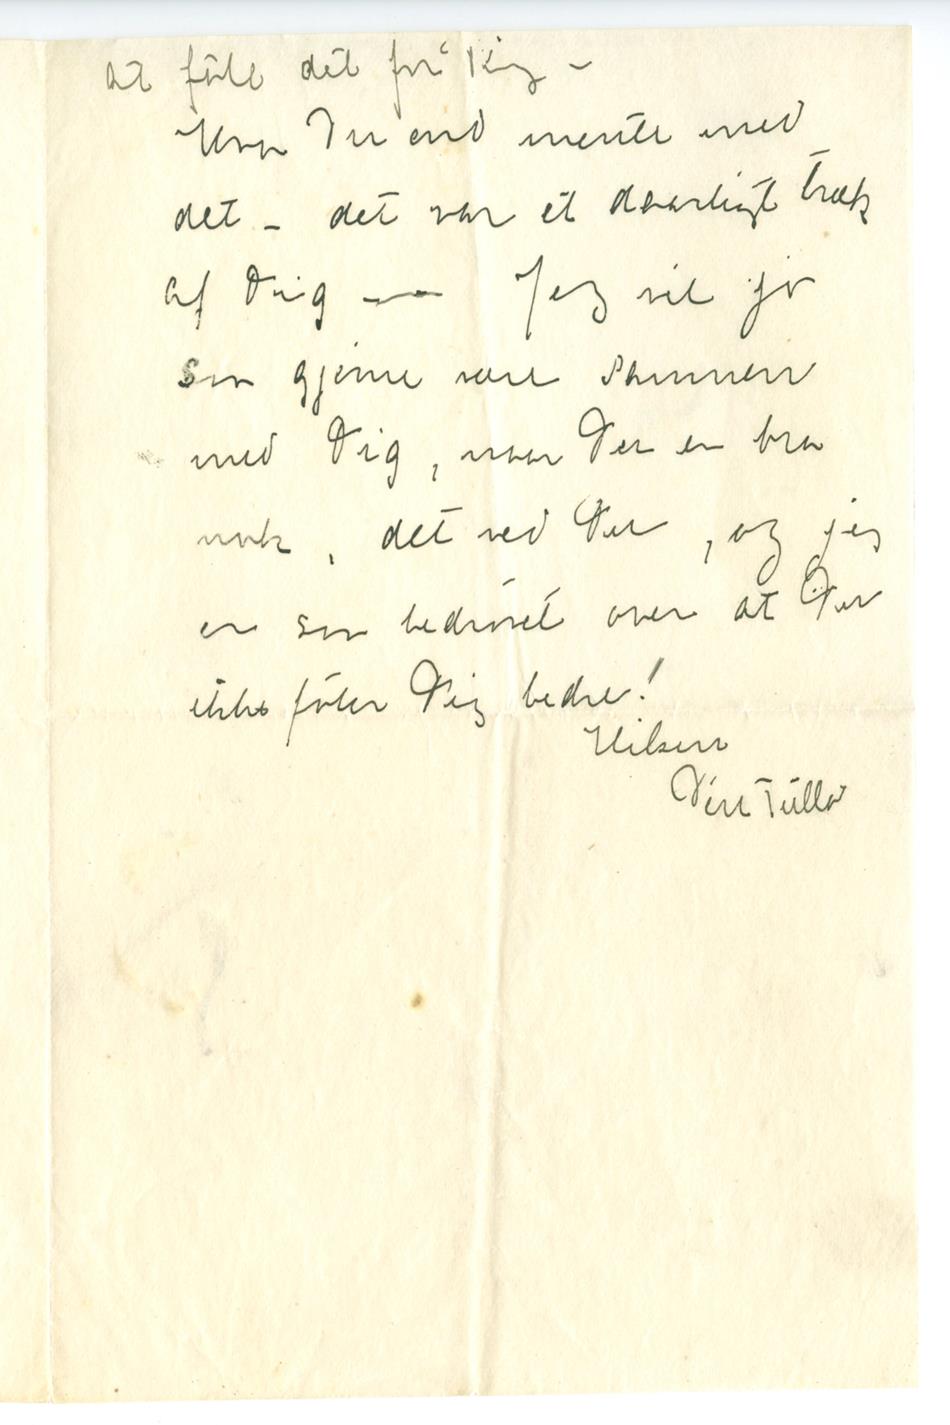 at föle det for
Hva Du end mente med
det – det var et daarligt træk
af Dig —— Jeg vil jo
saa gjerne være sammen
med Dig, naar Du er bra
nok, det ved Du, og jeg
er saa bedrövet over at Du
ikke föler Dig bedre!
Hilsen
Din Tulla